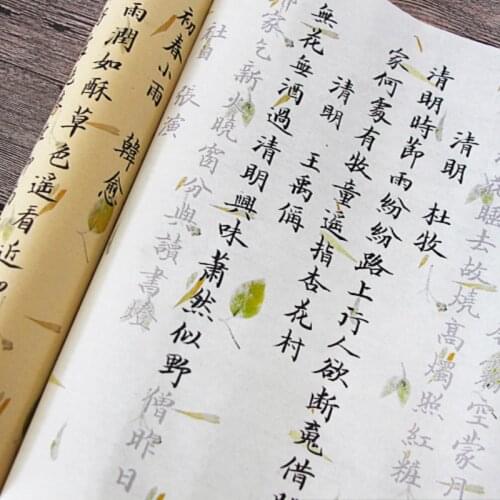 空蒙月
睡去故燒高燭照紅粧
清明 杜牧
清明時節雨紛紛路上行人欲斷魂借
家何處有牧童遙指杏花村
清明 王禹偁
無花無酒過清明興味蕭然似野僧昨日
鄰家乞新火曉窗分與讀書燈
社日 張演
初春小雨 韓愈
雨潤如酥草色遙看近